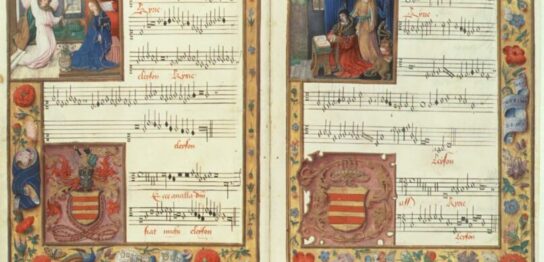 Kyrie
eleyson Kyrie
eleyson
Ecce ancilla dni
fiat michi eleyson
Kyrie
eleyson
Kyrie
eleyson